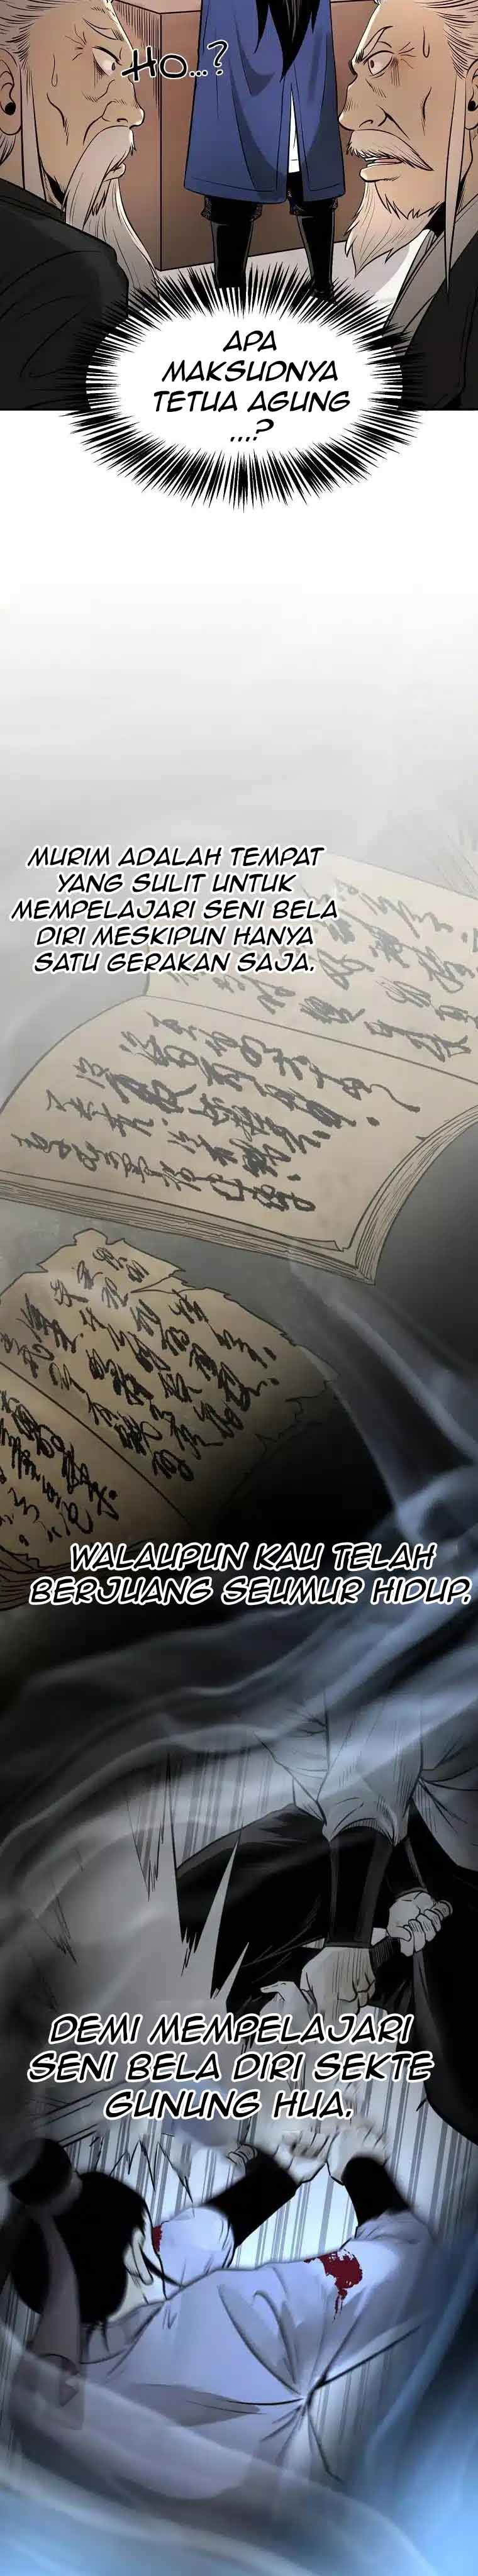 HO...?
APA
MAKSUDNYA
TETUA AGUNG
...?
MURIM ADALAH TEMPAT
YANG SULIT UNTUK
MEMPELAJARI SENI BELA
DIRI MESKIPUN HANYA
SATU GERAKAN SAJA.
WALAUPUN KAU TELAH
BERJUANG SEUMUR HIDUP.
DEMI MEMPELAJARI
SENI BELA DIRI SEKTE
GUNUNG HUA.